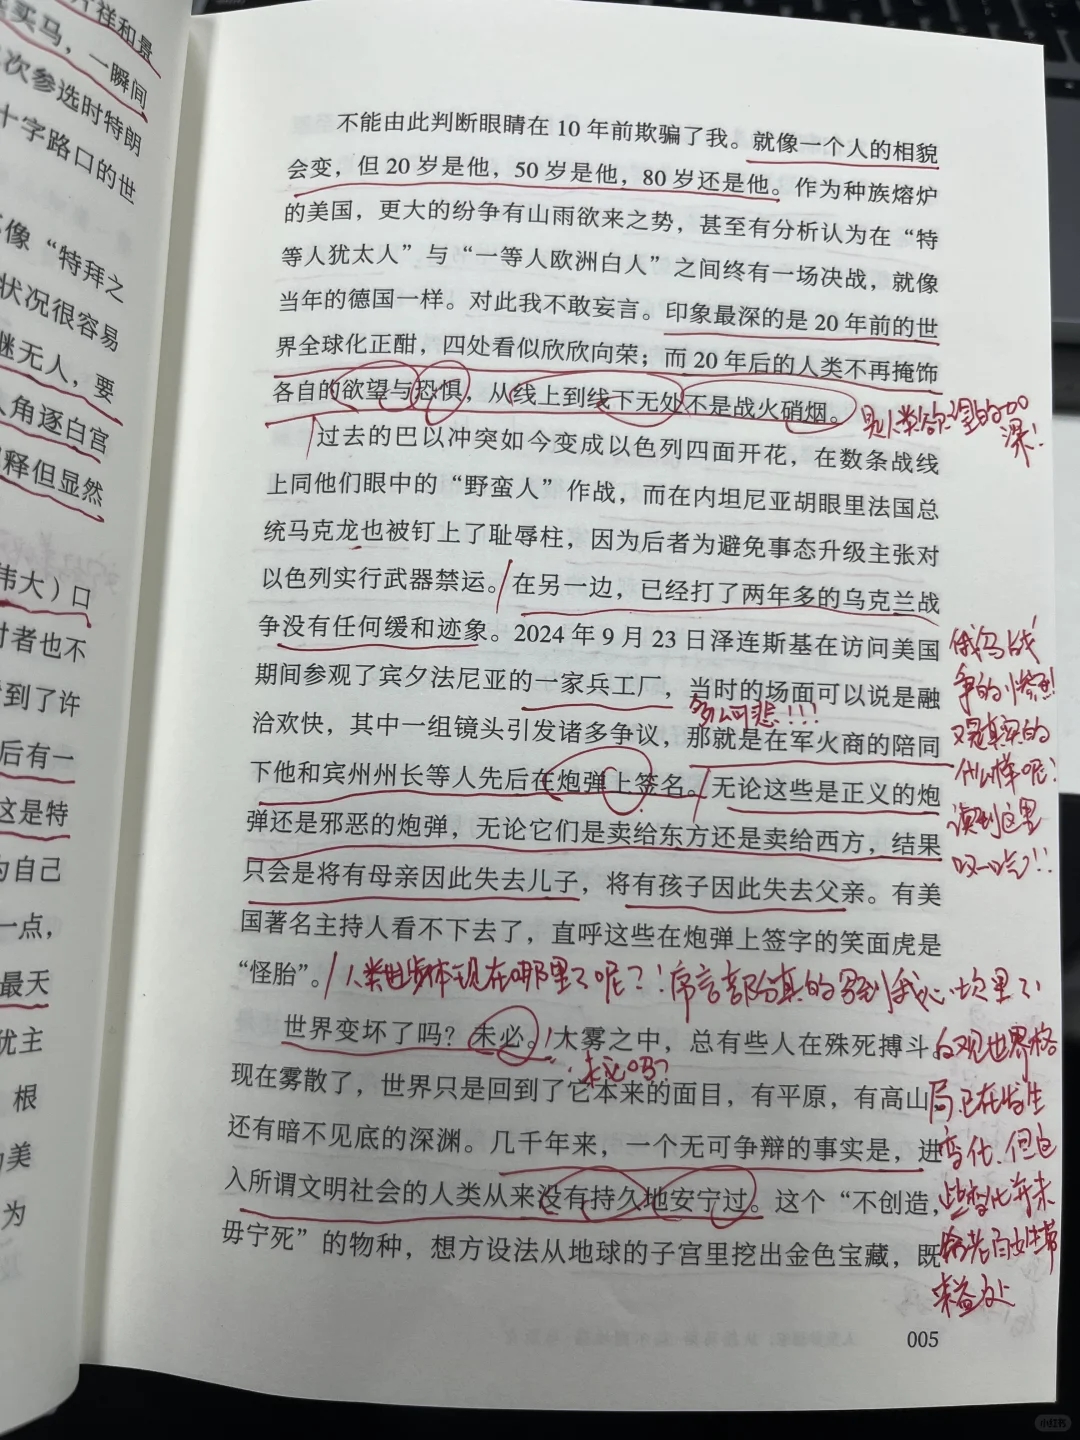 片祥和景
买马，一瞬间
次参选时特朗
十字路口的世
像“特拜之
状况很容易
继无人，要
人角逐白宫
释但显然
伟大）口
对者也不
看到了许
后有一
这是特
为自己
一点，
最天
犹主
根
的美
为
不能由此判断眼睛在 10 年前欺骗了我。就像一个人的相貌
会变，但 20 岁是他，50 岁是他，80 岁还是他。作为种族熔炉
的美国，更大的纷争有山雨欲来之势，甚至有分析认为在“特
等人犹太人”与“一等人欧洲白人”之间终有一场决战，就像
当年的德国一样。对此我不敢妄言。印象最深的是 20 年前的世
界全球化正酣，四处看似欣欣向荣；而 20 年后的人类不再掩饰
各自的欲望与恐惧，从线上到线下无处不是战火硝烟。
是人类欲望的加
深！
过去的巴以冲突如今变成以色列四面开花，在数条战线
上同他们眼中的“野蛮人”作战，而在内坦尼亚胡眼里法国总
统马克龙也被钉上了耻辱柱，因为后者为避免事态升级主张对
以色列实行武器禁运。在另一边，已经打了两年多的乌克兰战
争没有任何缓和迹象。2024 年 9 月 23 日泽连斯基在访问美国
期间参观了宾夕法尼亚的一家兵工厂，当时的场面可以说是融
多么可悲！！！
洽欢快，其中一组镜头引发诸多争议，那就是在军火商的陪同
下他和宾州州长等人先后在炮弹上签名。无论这些是正义的炮
弹还是邪恶的炮弹，无论它们是卖给东方还是卖给西方，结果
只会是将有母亲因此失去儿子，将有孩子因此失去父亲。有美
国著名主持人看不下去了，直呼这些在炮弹上签字的笑面虎是
“怪胎”。
俄乌战
争的惨烈
又是真实的
什么样呢？
读到这里
叹一口气！！
人类进步体现在哪里了呢？！序言部分真的写到我心坎里了！
世界变坏了吗？未必。大雾之中，总有些人在殊死搏斗。
未必吗？
现在雾散了，世界只是回到了它本来的面目，有平原，有高山，
还有暗不见底的深渊。几千年来，一个无可争辩的事实是，进
入所谓文明社会的人类从来没有持久地安宁过。这个“不创造，
毋宁死”的物种，想方设法从地球的子宫里挖出金色宝藏，既
世界格
局已在发生
变化，但这
些变化并未
给老百姓带
来益处
005
小红书